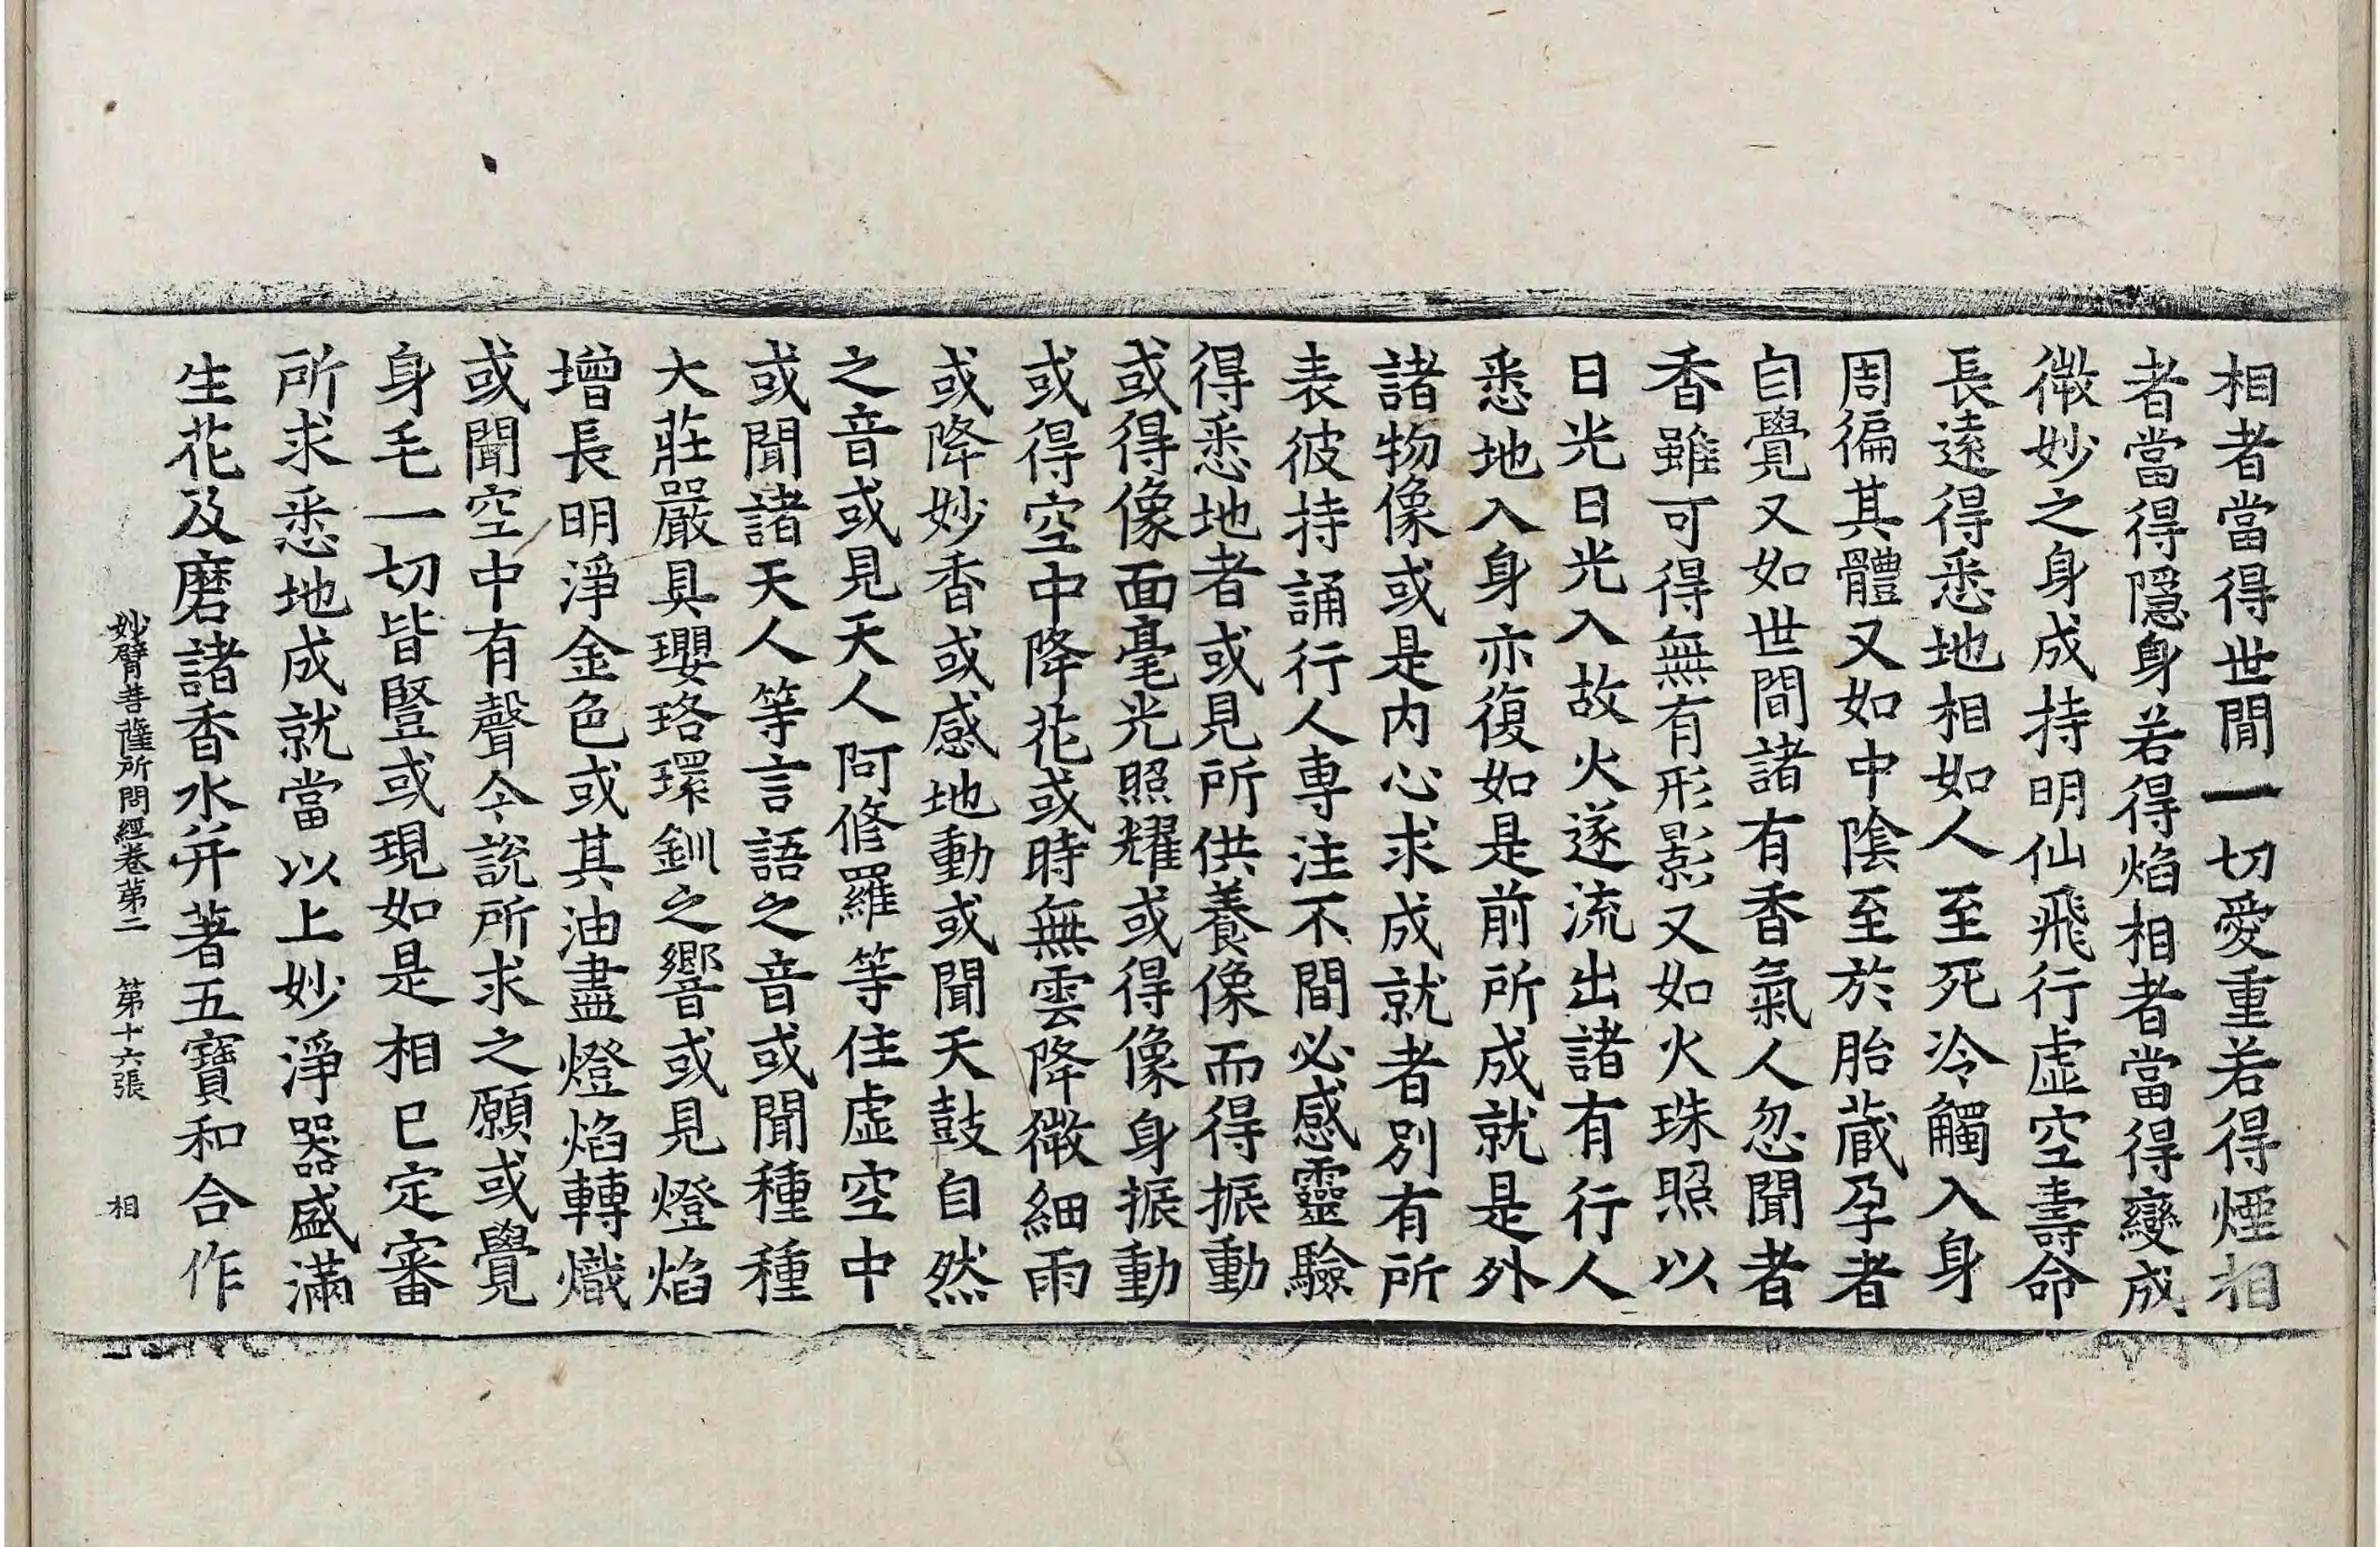 相者當得世間一切愛重若得煙相
者當得隱身若得焰相者當得變成
微妙之身成持明仙飛行虛空壽命
長遠得悉地相如人至死冷觸入身
周徧其體又如中陰至於胎蔵孕者
自覺又如世間諸有香氣人忽聞者
香雖可得無有形影又如火珠照以
日光日光入故火遂流出諸有行人
悉地入身亦復如是前所成就是外
諸物像或是内心求成就者別有所
表彼持誦行人專注不間必感靈驗
得悉地者或見所供養像而得振動
或得像面毫光照耀或得像身振動
或得空中降花或時無雲降微細雨
或降妙香或感地動或聞天鼓自然
之音或見天人阿修羅等住虛空中
或聞諸天人等言語之音或聞種種
大莊嚴具瓔珞環釧之響或見燈焰
增長明淨金色或其油盡燈焰轉熾
或聞空中有聲令說所求之願或覺
身毛一切皆豎或現如是相已定審
所求悉地成就當以上妙淨器盛滿
生花及磨諸香水并著五寶和合作
妙臂菩薩所問經卷第二 第十六張 相